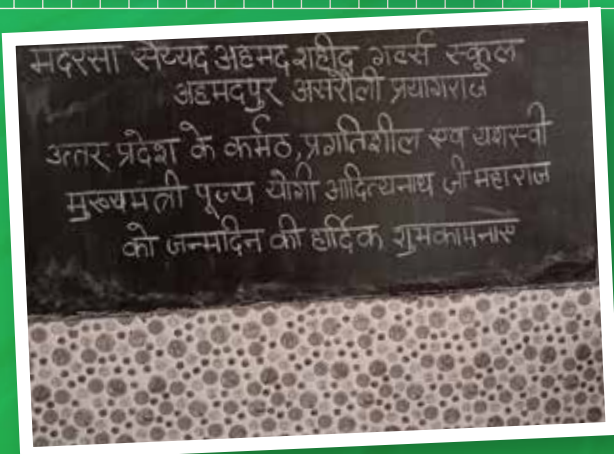 मदरसा सैय्यद अहमद शहीद गर्ल्स स्कूल
अहमदपुर असरौली प्रयागराज
उत्तर प्रदेश के कर्मठ,प्रगतिशील एवं यशस्वी
मुख्यमंत्री पूज्य योगी आदित्यनाथ जी महाराज
को जन्मदिन की हार्दिक शुभकामनाएं